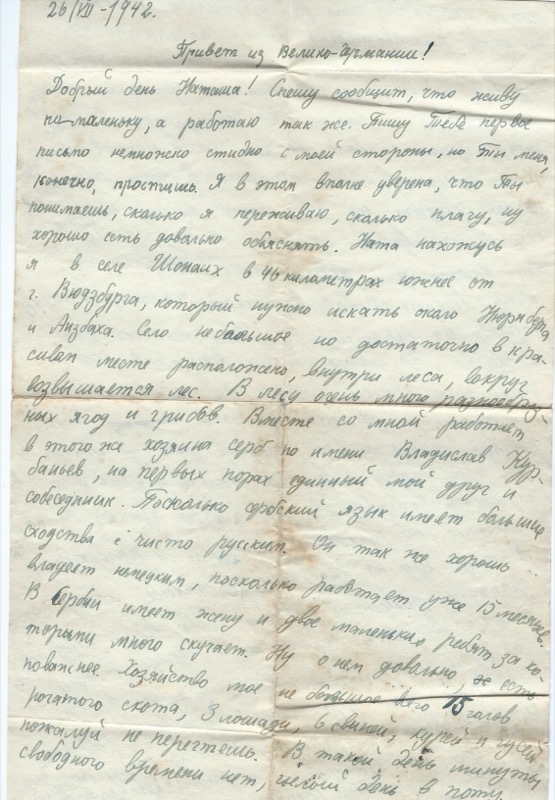 26/VII-1942.
Привет из Велико-Германии!
Добрый день Наташа! Спешу сообщит, что живу
по-маленьку, а работаю так же. Пишу Тебе первое
письмо немножко стидно с моей стороны, но Ты меня,
конечно, простишь. Я в этом вполне уверена, что Ты
понимаешь, сколько я переживаю, сколько плачу, ну
хорошо есть довольно объяснять. Ната нахожусь
я в селе Шонаих в 46 километрах южнее от
г. Вюдзбурга, который нужно искать около Нюрнберга
и Анзбаха. Село небольшое но достаточно в кра-
сивап месте расположено, внутри леса, вокруг
возвышается лес. В лесу очень много разнообраз-
ных ягод и грибов. Вместе со мной работает
в этого же хозяина серб по имени Владислав Кур-
баньев, на первых порах единный мой друг и
собеседник. Поскольку сербский язык имеет большие
сходства с чисто русским. Он так же хорошо
владеет немецким, поскольку работает уже 15 месяцев.
В Сербии имеет жену и двое маленьких ребят за ко-
торыми много скучает. Ну о нем довольно, есть
поважнее. Хозяйство мое не большое всего 15 галов
рогатого скота, 3 лошади, 6 свиней, курей и гусей
пожалуй не перечтешь. В такой день минуты
свободного времени нет, целый день в поту.